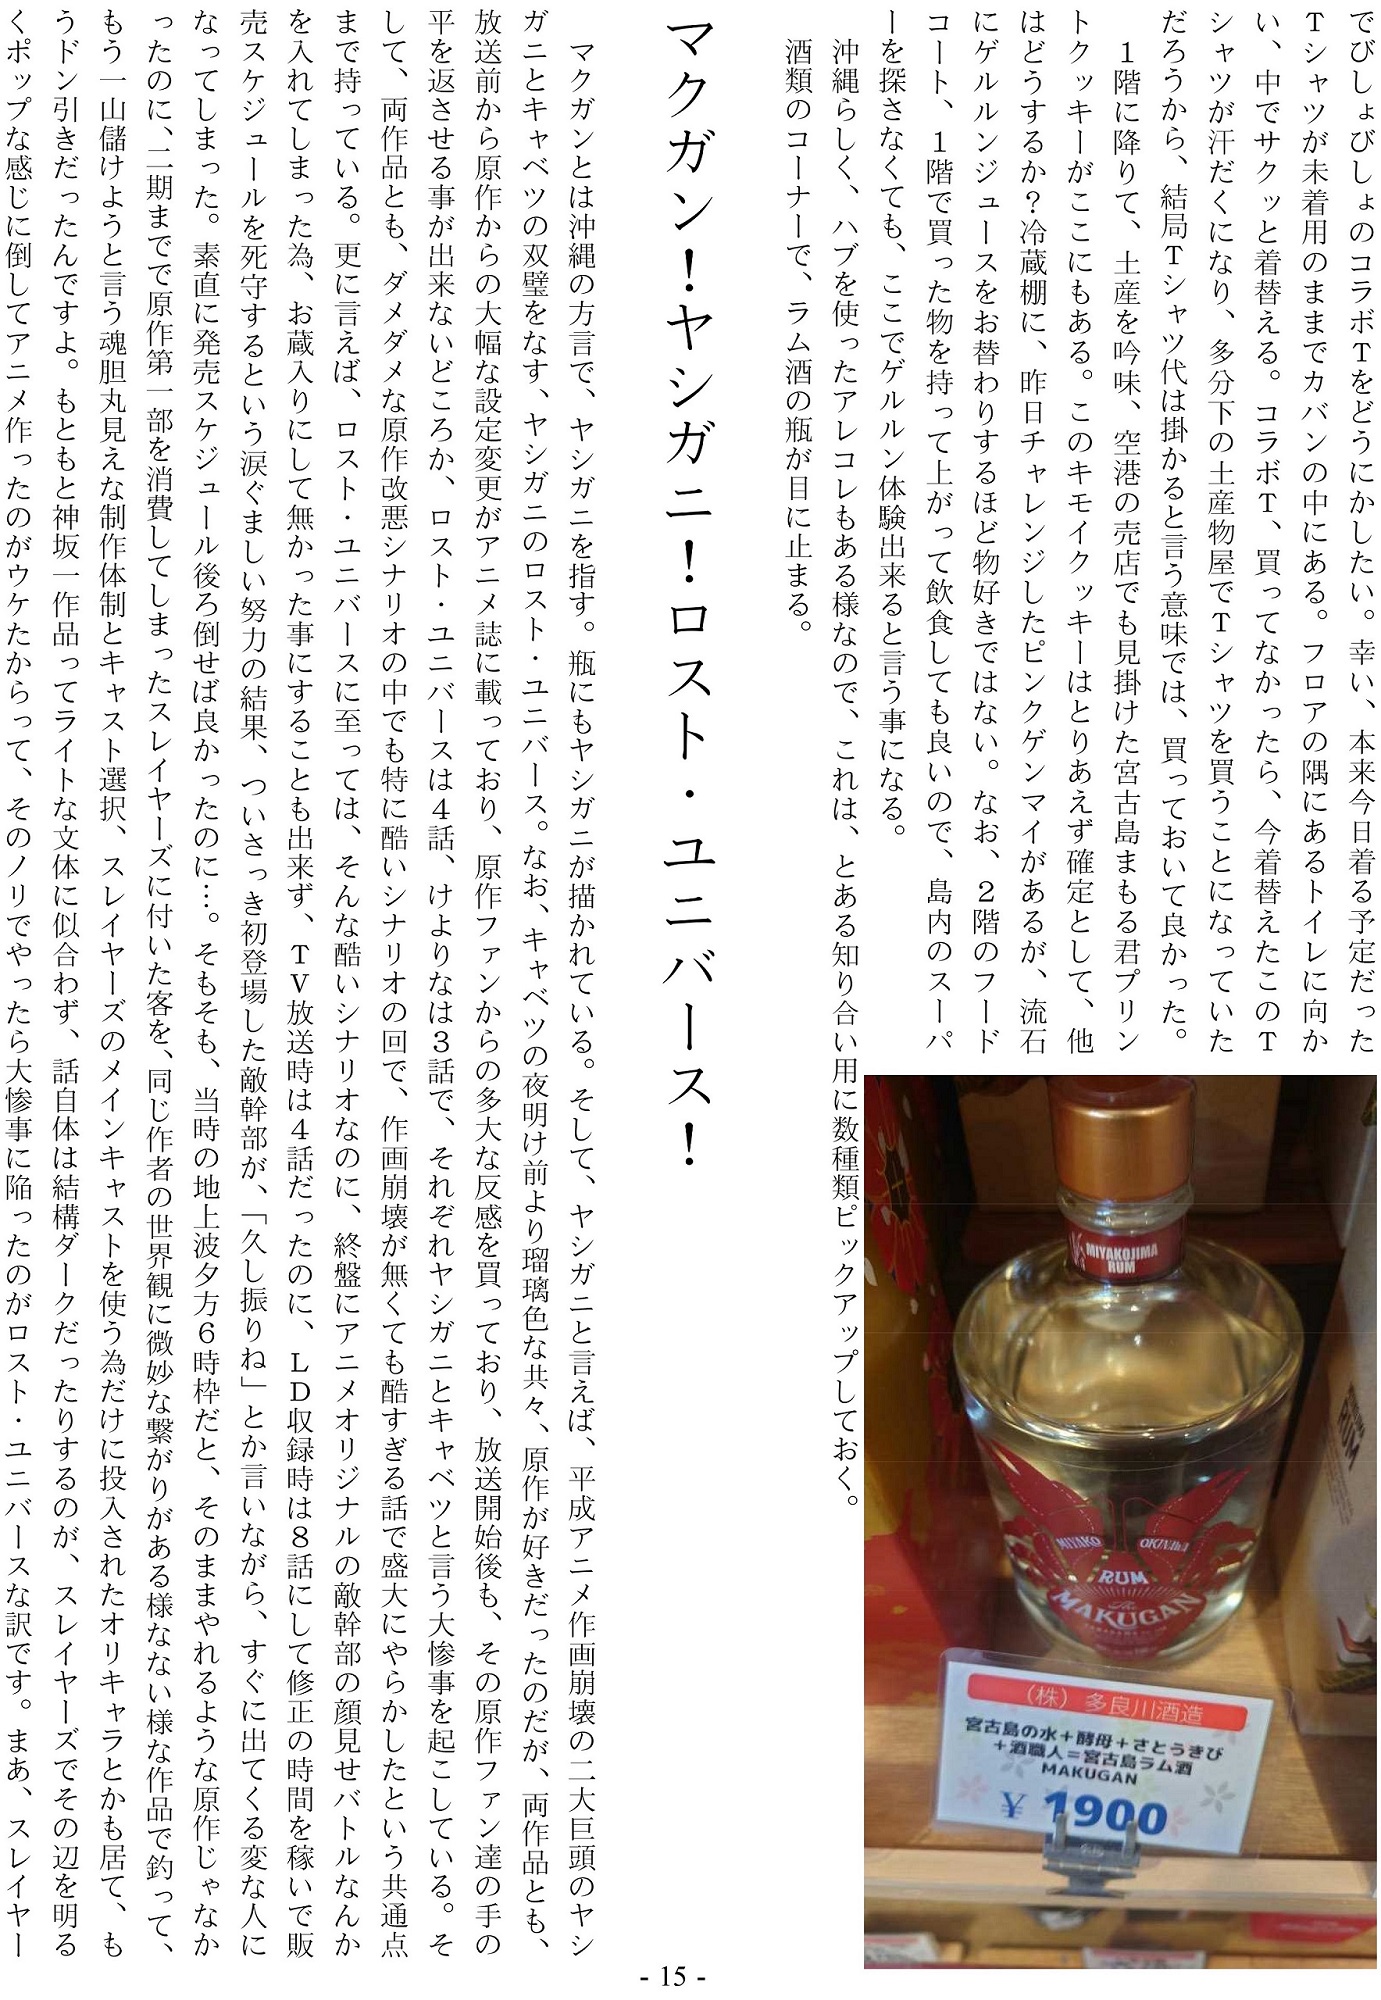 でびしょびしょのコラボTをどうにかしたい。幸い、本来今日着る予定だった
Tシャツが未着用のままでカバンの中にある。フロアの隅にあるトイレに向か
い、中でサクッと着替える。コラボT、買ってなかったら、今着替えたこのT
シャツが汗だくになり、多分下の土産物屋でTシャツを買うことになっていた
だろうから、結局Tシャツ代は掛かると言う意味では、買っておいて良かった。
１階に降りて、土産を吟味、空港の売店でも見掛けた宮古島まもる君プリン
トクッキーがここにもある。このキモイクッキーはとりあえず確定として、他
はどうするか？冷蔵棚に、昨日チャレンジしたピンクゲンマイがあるが、流石
にゲルルンジュースをお替わりするほど物好きではない。なお、２階のフード
コート、１階で買った物を持って上がって飲食しても良いので、島内のスーパ
ーを探さなくても、ここでゲルルン体験出来ると言う事になる。
沖縄らしく、ハブを使ったアレコレもある様なので、これは、とある知り合い用に数種類ピックアップしておく。
酒類のコーナーで、ラム酒の瓶が目に止まる。
マクガン！ヤシガニ！ロスト・ユニバース！
マクガンとは沖縄の方言で、ヤシガニを指す。瓶にもヤシガニが描かれている。そして、ヤシガニと言えば、平成アニメ作画崩壊の二大巨頭のヤシ
ガニとキャベツの双璧をなす、ヤシガニのロスト・ユニバース。なお、キャベツの夜明け前より瑠璃色な共々、原作が好きだったのだが、両作品とも、
放送前から原作からの大幅な設定変更がアニメ誌に載っており、原作ファンからの多大な反感を買っており、放送開始後も、その原作ファン達の手の
平を返させる事が出来ないどころか、ロスト・ユニバースは４話、けよりなは３話で、それぞれヤシガニとキャベツと言う大惨事を起こしている。そ
して、両作品とも、ダメダメな原作改悪シナリオの中でも特に酷いシナリオの回で、作画崩壊が無くても酷すぎる話で盛大にやらかしたという共通点
まで持っている。更に言えば、ロスト・ユニバースに至っては、そんな酷いシナリオなのに、終盤にアニメオリジナルの敵幹部の顔見せバトルなんか
を入れてしまった為、お蔵入りにして無かった事にすることも出来ず、TV放送時は４話だったのに、LD収録時は８話にして修正の時間を稼いで販
売スケジュールを死守するという涙ぐましい努力の結果、ついさっき初登場した敵幹部が、「久し振りね」とか言いながら、すぐに出てくる変な人に
なってしまった。素直に発売スケジュール後ろ倒せば良かったのに…。そもそも、当時の地上波夕方６時枠だと、そのままやれるような原作じゃなか
ったのに、二期までで原作第一部を消費してしまったスレイヤーズに付いた客を、同じ作者の世界観に微妙な繋がりがある様なない様な作品で釣って、
もう一山儲けようと言う魂胆丸見えな制作体制とキャスト選択、スレイヤーズのメインキャストを使う為だけに投入されたオリキャラとかも居て、も
うドン引きだったんですよ。もともと神坂一作品ってライトな文体に似合わず、話自体は結構ダークだったりするのが、スレイヤーズでその辺を明る
くポップな感じに倒してアニメ作ったのがウケたからって、そのノリでやったら大惨事に陥ったのがロスト・ユニバースな訳です。まあ、スレイヤー
MIYAKOJIMA
RUM
MIYAKO OKINAWA
RUM
The
MAKUGAN
RUM
（株）多良川酒造
宮古島の水＋酵母＋さとうきび
＋酒職人＝宮古島ラム酒
MAKUGAN
￥1900
- 15 -